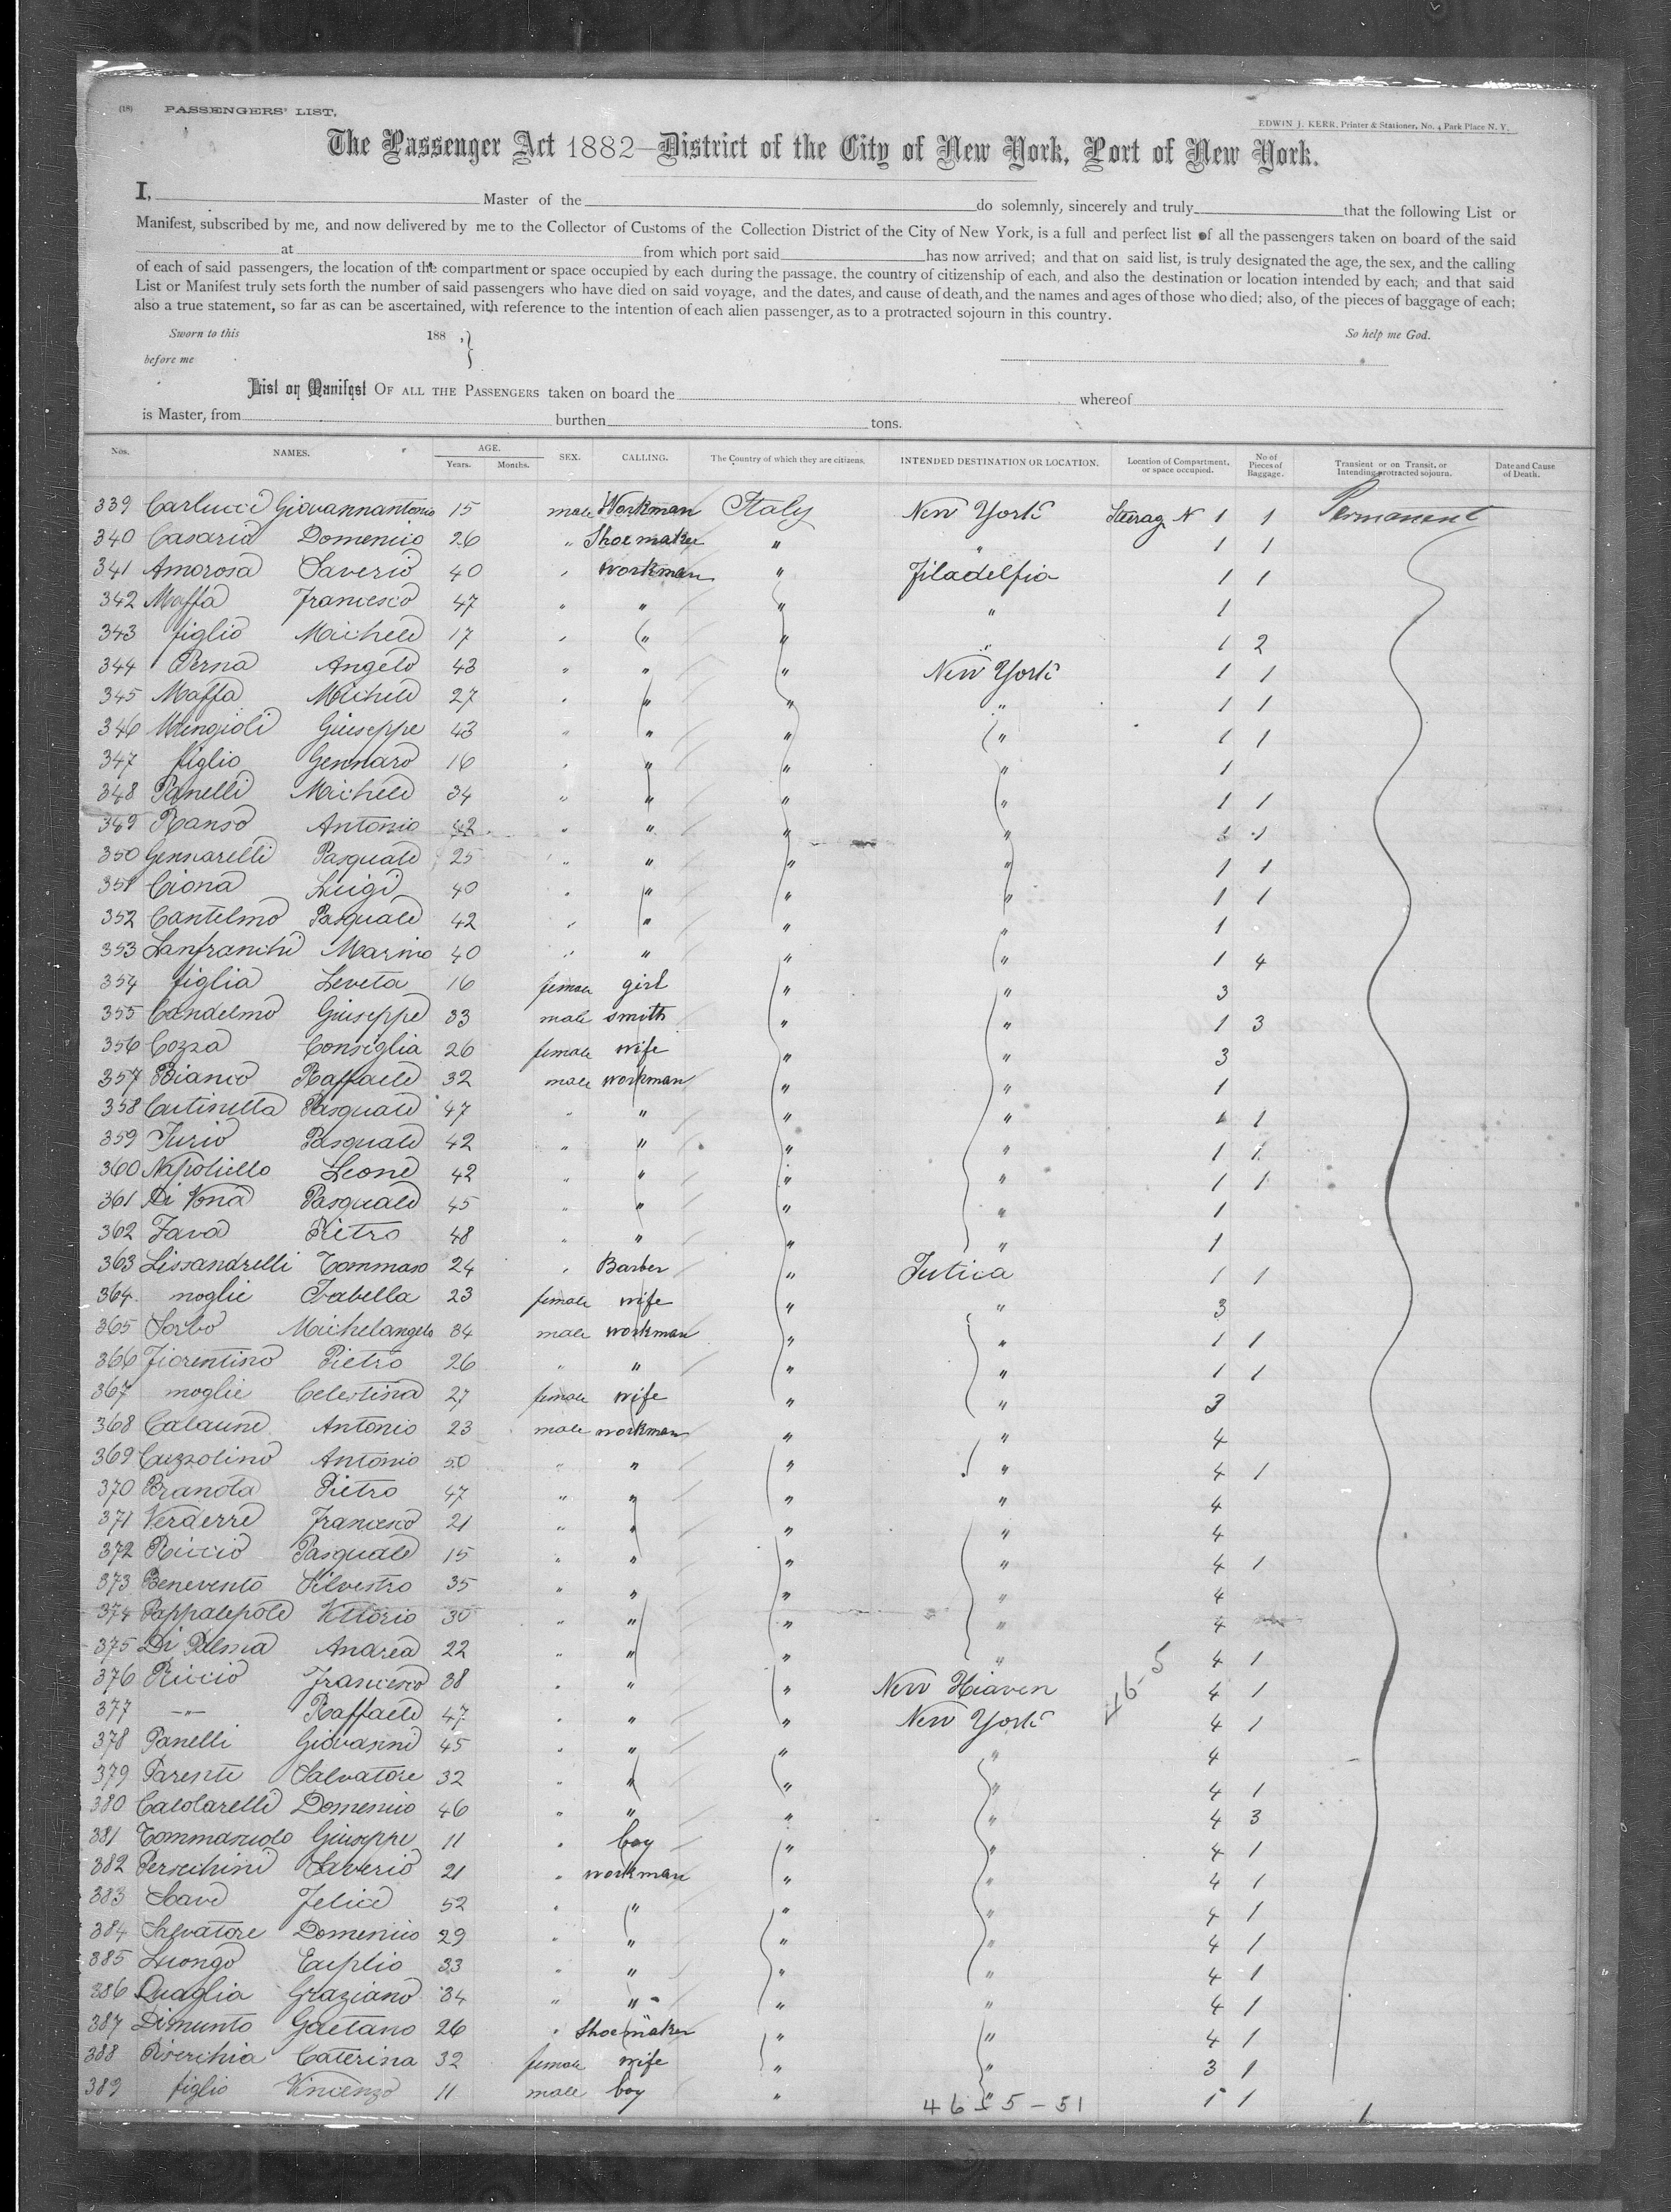 (18) PASSENGERS' LIST.
EDWIN J. KERR, Printer & Stationer, No. 4 Park Place N. Y.
The Passenger Act 1882—District of the City of New York, Port of New York.
I, Master of the do solemnly, sincerely and truly that the following List or
Manifest, subscribed by me, and now delivered by me to the Collector of Customs of the Collection District of the City of New York, is a full and perfect list of all the passengers taken on board of the said
at from which port said has now arrived; and that on said list, is truly designated the age, the sex, and the calling
of each of said passengers, the location of the compartment or space occupied by each during the passage, the country of citizenship of each, and also the destination or location intended by each; and that said
List or Manifest truly sets forth the number of said passengers who have died on said voyage, and the dates, and cause of death, and the names and ages of those who died; also, of the pieces of baggage of each;
also a true statement, so far as can be ascertained, with reference to the intention of each alien passenger, as to a protracted sojourn in this country.
Sworn to this 188 , } So help me God.
before me
List or Manifest OF ALL THE PASSENGERS taken on board the whereof
is Master, from burthen tons.
Nos. NAMES. AGE. Years. Months. SEX. CALLING. The Country of which they are citizens. INTENDED DESTINATION OR LOCATION. Location of Compartment, or space occupied. No of Pieces of Baggage. Transient or on Transit, or Intending protracted sojourn. Date and Cause of Death.
339 Carlucci Giovannantonio 15 male Workman Italy New York Steerag N 1 1 Permanent
340 Casaria Domenico 26 " Shoemaker " " 1 1
341 Amorosa Saverio 40 " workman " Filadelfia 1 1
342 Maffa Francesco 47 " " " " 1
343 figlio Michele 17 " " " " 1 2
344 Perna Angelo 43 " " " New York 1 1
345 Maffa Michele 27 " " " " 1 1
346 Mengioli Giuseppe 43 " " " " 1 1
347 figlio Gennaro 16 " " " " 1
348 Panelli Michele 34 " " " " 1 1
349 Ranso Antonio 42 " " " " 1 1
350 Gennarelli Pasquale 25 " " " " 1 1
351 Ciona Luigi 40 " " " " 1 1
352 Cantelmo Pasquale 42 " " " " 1
353 Lanfranchi Marino 40 " " " " 1 4
354 figlia Leveta 16 female girl " " 3
355 Candelmo Giuseppe 33 male smith " " 1 3
356 Cozza Consiglia 26 female wife " " 3
357 Bianco Raffaele 32 male workman " " 1
358 Cutinella Pasquale 47 " " " " 1 1
359 Furio Pasquale 42 " " " " 1 1
360 Napoliello Leone 42 " " " " 1 1
361 Di Vona Pasquale 45 " " " " 1
362 Fava Pietro 48 " " " " 1
363 Lissandrelli Tommaso 24 " Barber " Jutica 1 1
364 moglie Isabella 23 female wife " " 3
365 Sorbo Michelangelo 34 male workman " " 1 1
366 Fiorentino Pietro 26 " " " " 1 1
367 moglie Celestina 27 female wife " " 3
368 Calaune Antonio 23 male workman " " 4
369 Cuzzolino Antonio 50 " " " " 4 1
370 Branola Pietro 47 " " " " 4
371 Verderre Francesco 21 " " " " 4
372 Riccio Pasquale 15 " " " " 4 1
373 Benevento Silvestro 35 " " " " 4
374 Pappalepole Vittorio 30 " " " " 4
375 Di Palma Andrea 22 " " " " 4 1
376 Riccio Francesco 38 " " " New Hiaven 4 1
377 —"— Raffaele 47 " " " New York 4 1
46-5
378 Panelli Giovanni 45 " " " " 4
379 Parente Salvatore 32 " " " " 4 1
380 Calolarelli Domenico 46 " " " " 4 3
381 Tommasuolo Giuseppe 11 " boy " " 4 1
382 Perschini Saverio 21 " workman " " 4 1
383 Save Felice 52 " " " " 4 1
384 Salvatore Domenico 29 " " " " 4 1
385 Luongo Euplio 33 " " " " 4 1
386 Quaglia Graziano 34 " " " " 4 1
387 Dimunto Gaetano 26 " Shoemaker " " 4 1
388 Piserchia Caterina 32 female wife " " 3 1
389 figlio Vincenzo 11 male boy " " 1 1
46 & 5 - 51